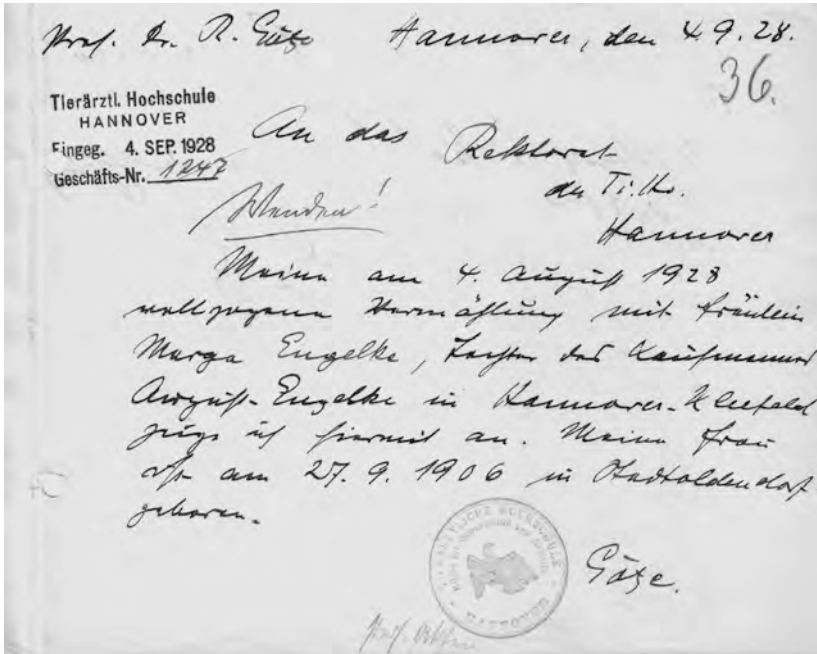 Prof. Dr. R. Götze Hannover, den 4.9.28.
36.
Tierärztl. Hochschule
HANNOVER
Eingeg. 4. SEP. 1928
Geschäfts-Nr. 1247
An das Rektorat
der Ti.Ho.
Hannover
Wenden!
Meine am 4. August 1928
vollzogene Vermählung mit Fräulein
Marga Engelke, Tochter des Kaufmannes
August Engelke in Hannover-Kleefeld
zeige ich hiermit an. Meine Frau
ist am 27.9.1906 in Stadtoldendorf
geboren.
TIERÄRZTLICHE HOCHSCHULE
HANNOVER
Götze.